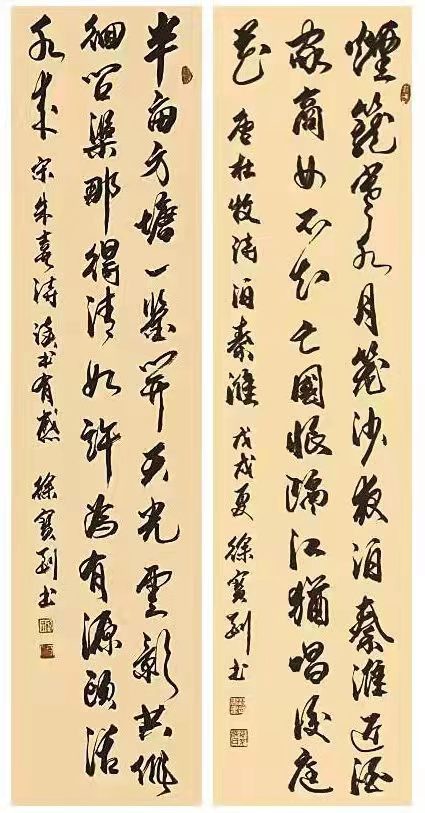 煙籠寒水月笼沙夜泊秦淮近酒
家商女不知亡國恨隔江猶唱後庭
花 唐杜牧詩泊秦淮 戊戌夏 徐寶書
半畝方塘一鑒開天光雲影共徘
徊問渠那得清如許為有源頭活
水來 宋朱熹詩讀书有感 徐寶書